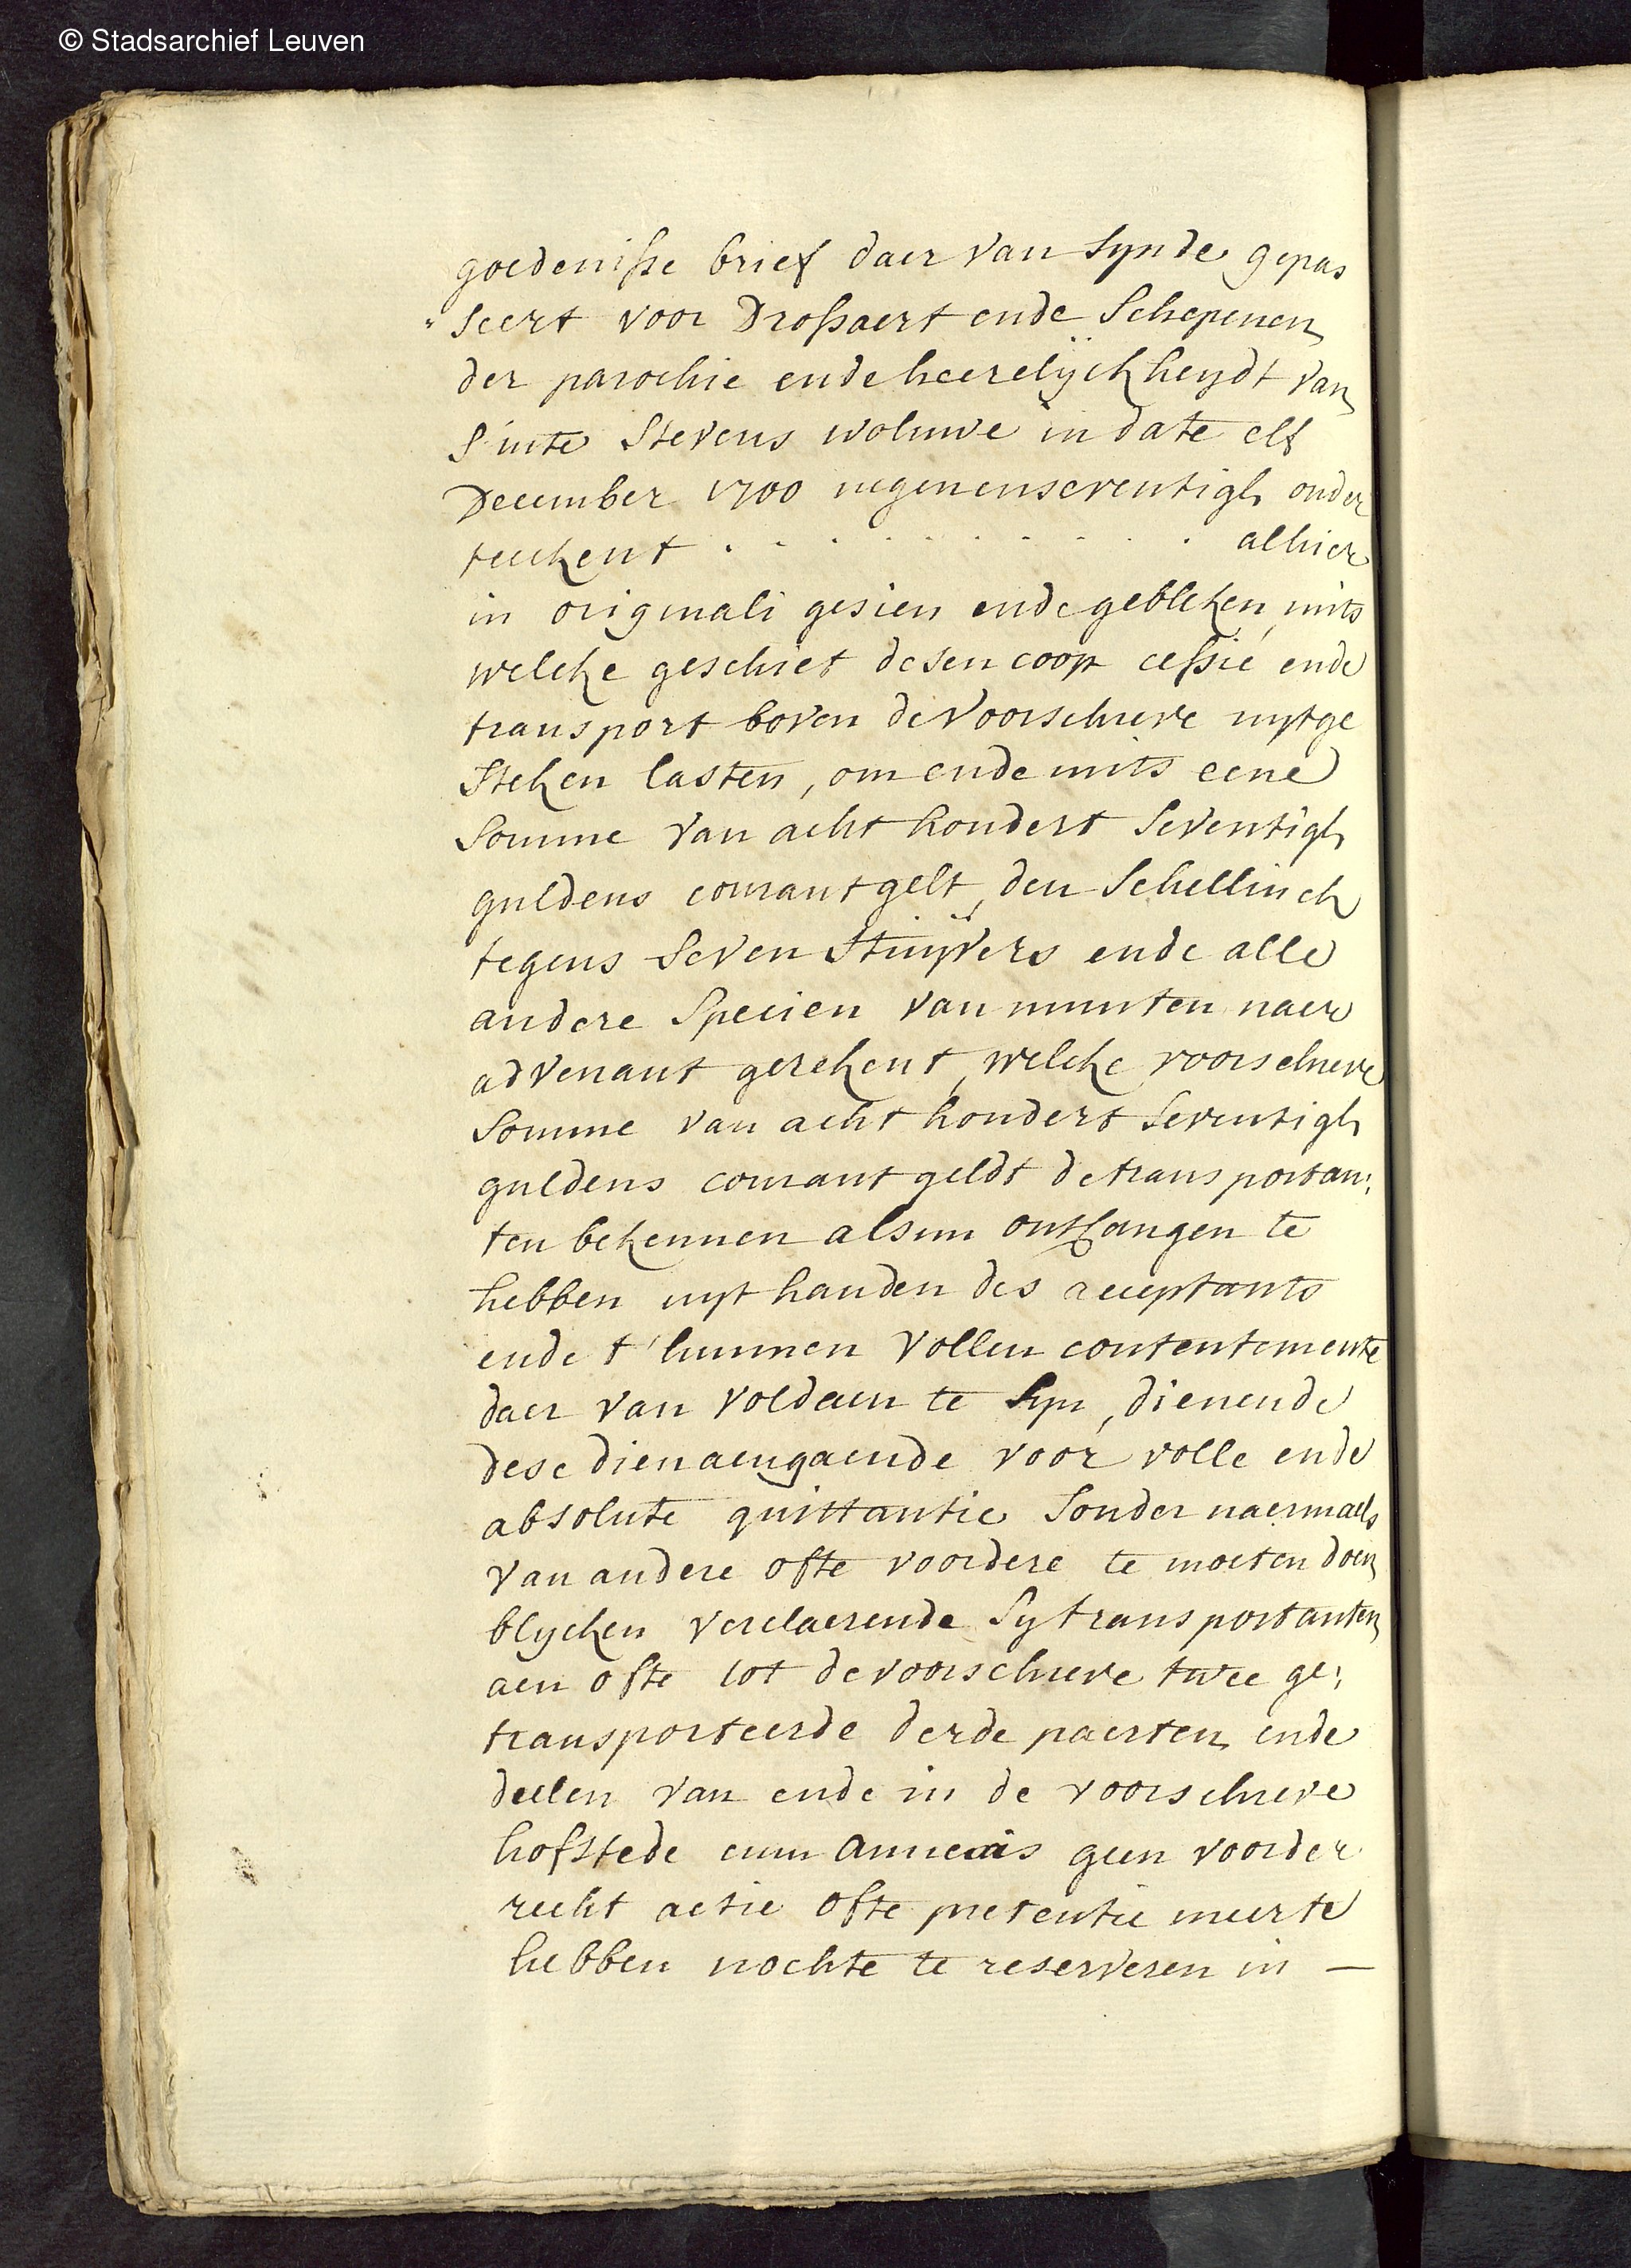 © Stadsarchief Leuven
goedenisse brief daer van synde gepas
"seert voor Drossaert ende Schepenen
der parochie ende heerelyckheydt van
S'inte Stevens woluwe in date elf
December 1700 negenenseventigh onder
teekent . . . . . . . . . . . alhier
in originali gesien ende gebleken, mits
welcke geschiet desen coop cessie ende
transport boven de voorschreve uytge
steken lasten, om ende mits eene
somme van acht hondert seventigh
guldens courant gelt, den Schellinck
tegens seven stuyvers ende alle
andere specien van munten naer
advenant gerekent, welcke voorschreve
somme van acht hondert seventigh
guldens courant geldt de transportan:
ten bekennen alsnu ontfangen te
hebben uyt handen des acceptants
ende t'hunnen vollen contentemente
daer van voldaen te syn, dienende
dese dienaengaende voor volle ende
absolute quittantie sonder naermaels
van andere ofte voordere te moeten doen
blycken verclaerende sy transportanten
aen ofte tot de voorschreve twee ge:
transporteerde derde paerten ende
deelen van ende in de voorschreve
hofstede cum annexis geen voorder
recht actie ofte pretentie meer te
hebben nochte te reserveren in —